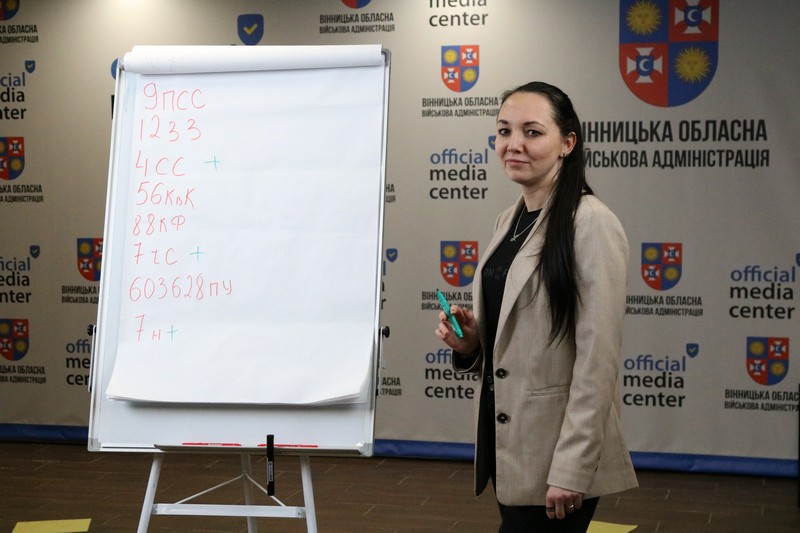 9ПСС
1233
4СС +
56КвК
88КФ
7ЧС +
603628ПУ
7н +
official
media
center
ВІННИЦЬКА ОБЛАСНА
ВІЙСЬКОВА АДМІНІСТРАЦІЯ
media
center
ВІННИЦЬКА ОБЛАСНА
ВІЙСЬКОВА АДМІНІСТРАЦІЯ
official
media
center
ВІННИЦЬКА ОБЛАСНА
official
media
center
ВІННИЦЬКА ОБЛАСНА
ІЙСЬКОВА АДМІНІСТРАЦІЯ
ВІННИЦЬКА ОБЛАСНА
ВІЙСЬКОВА АДМІНІСТРАЦІЯ
official
media
center
ВІННИЦЬКА ОБЛАСНА
ВІЙСЬКОВА АДМІНІСТРАЦІЯ
official
media
center
official
media
center
ВІННИЦЬКА ОБЛАСНА
ВІЙСЬКОВА АДМІНІСТРАЦІЯ